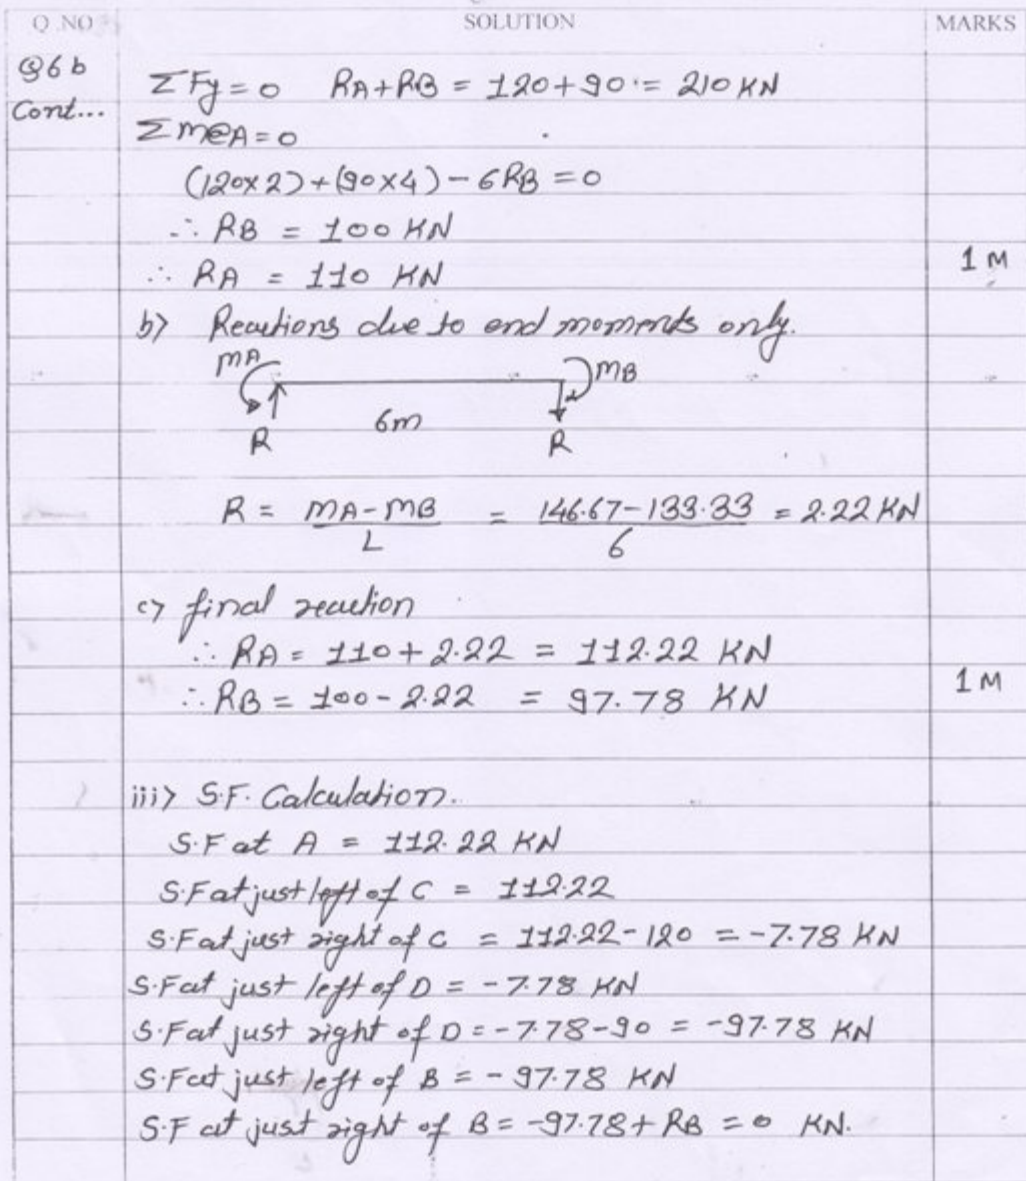 Q .NO SOLUTION MARKS
Q6 b ΣFy = 0 RA+RB = 120+90 = 210 KN
Cont...
Σm@A = 0
(120×2)+(90×4) - 6RB = 0
∴ RB = 100 KN
∴ RA = 110 KN 1 M
b) Reactions due to end moments only.
mA MB
6m
R R
R = mA-mB / L = 146.67-133.33 / 6 = 2.22 KN
c) final reaction
∴ RA = 110 + 2.22 = 112.22 KN
∴ RB = 100 - 2.22 = 97.78 KN 1 M
iii) S.F. Calculation.
S.F at A = 112.22 KN
S.F at just left of C = 112.22
S.F at just right of C = 112.22-120 = -7.78 KN
S.F at just left of D = -7.78 KN
S.F at just right of D = -7.78-90 = -97.78 KN
S.F at just left of B = -97.78 KN
S.F at just right of B = -97.78 + RB = 0 KN.